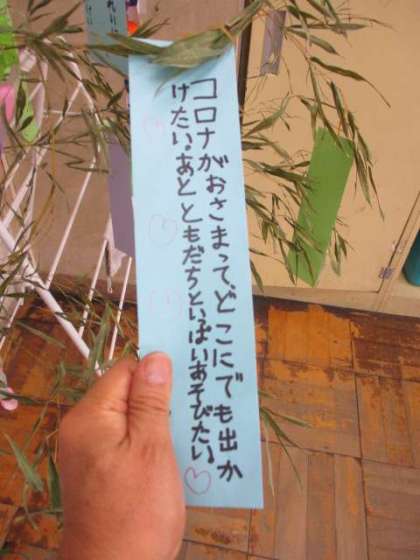 コロナがおさまって、どこにでも出か
けたい。あとともだちといっぱいあそびたい